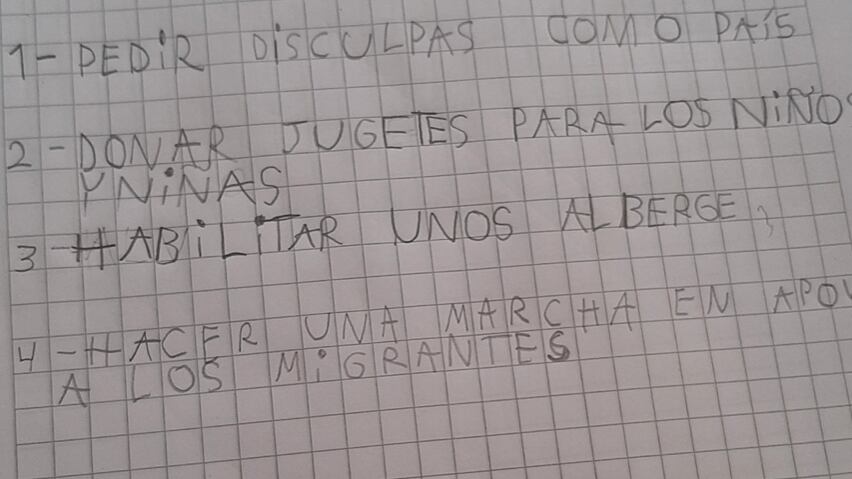 1- PEDIR DISCULPAS COMO PAÍS
2 - DONAR JUGETES PARA LOS NIÑO
Y NIÑAS
3 - HABILITAR UNOS ALBERGE
4 - HACER UNA MARCHA EN APOY
A LOS MIGRANTES